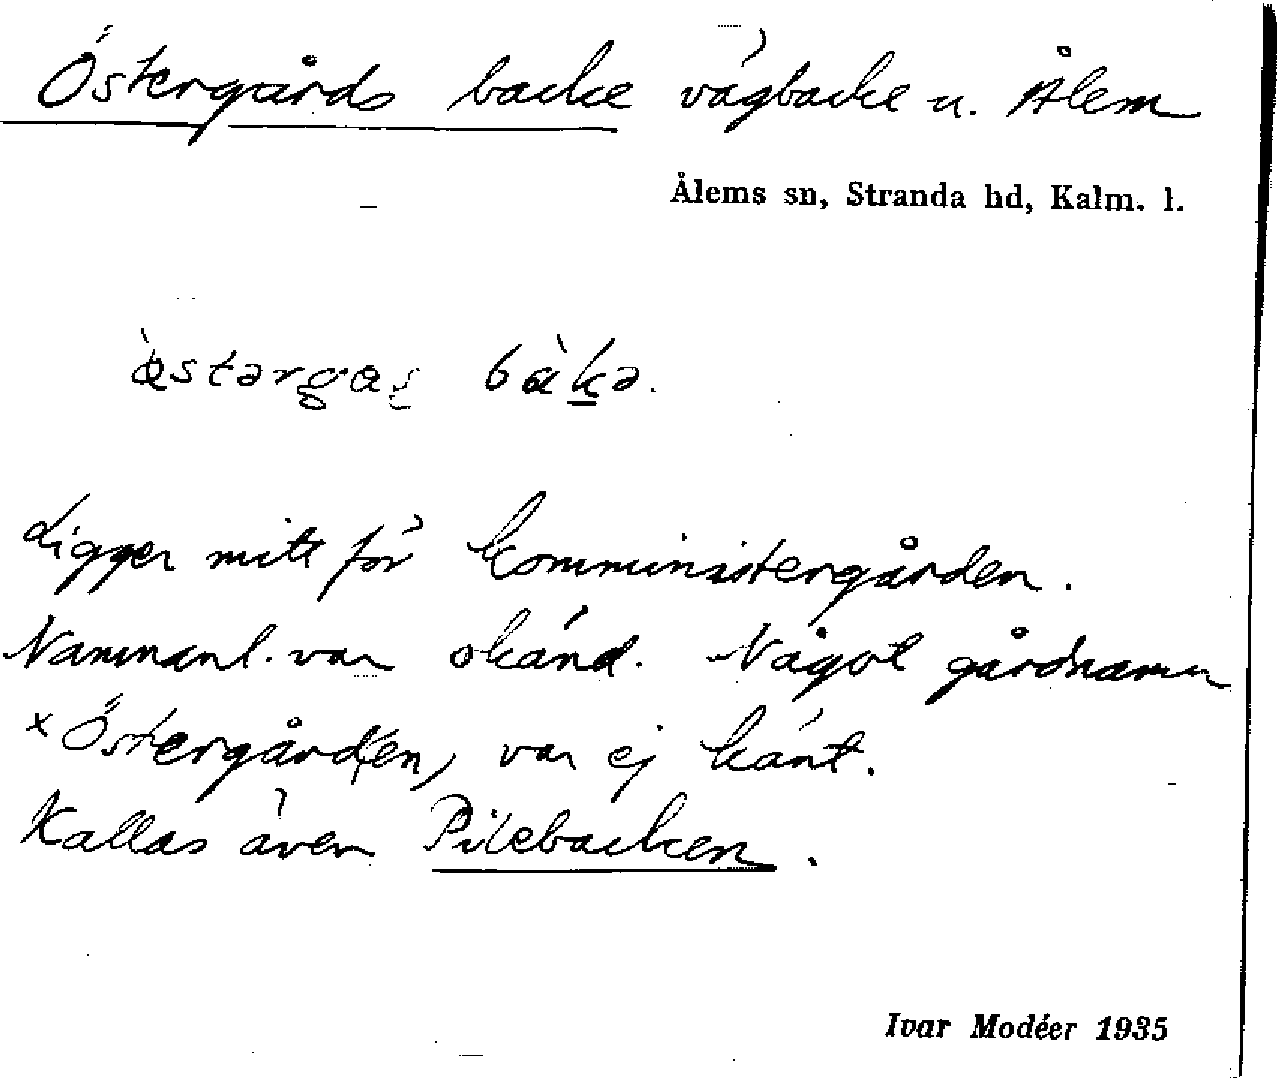 Östergårds backe vägbacke u. Ålem
Ålems sn, Stranda hd, Kalm. l.
Ligger mitt för Komministergården.
Namnanl. var okänd. Något gårdnamn
× Östergård(en) var ej känt.
Kallas även Pilebacken.
Ivar Modéer 1935